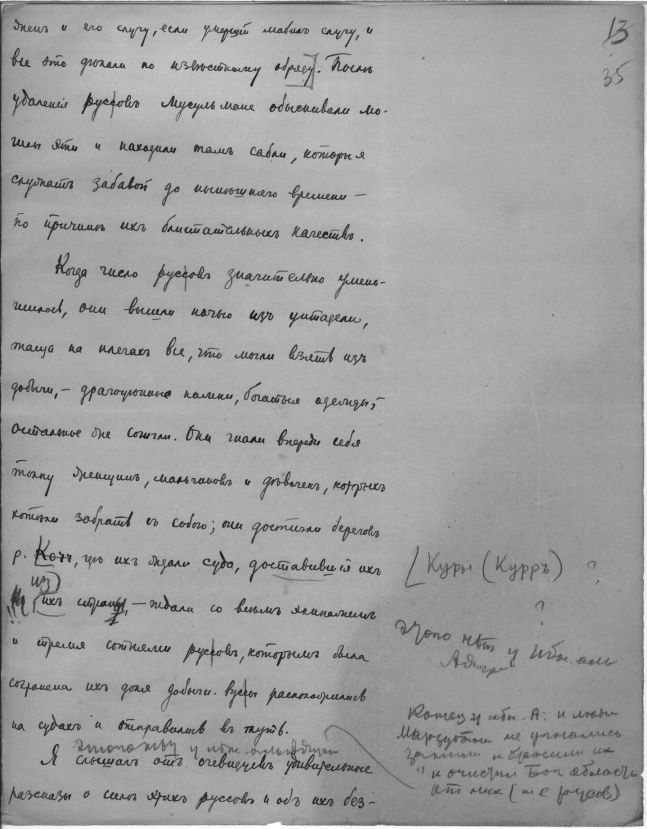 13
35
женъ и его слугу, если умершій любилъ слугу, и
все это дѣлали по извѣстному обряду. Послѣ
удаленія руссовъ Мусульмане обыскивали мо-
гилы эти и находили тамъ сабли, которыя
служатъ забавой до нынѣшняго времени –
по причинѣ ихъ блистательныхъ качествъ.
Когда число руссовъ значительно умень-
шилось, они вышли ночью изъ цитадели,
таща на плечахъ все, что могли взять изъ
добычи, – драгоцѣнные камни, богатыя одежды;
остальное сожгли. Они гнали впереди себя
толпу женщинъ, мальчиковъ и дѣвочекъ, которыхъ
хотѣли забрать съ собою; они достигли береговъ
р. гдѣ ихъ ждали суда, доставившія ихъ
изъ ихъ страны, – ждали со всѣмъ экипажемъ
и тремя сотнями руссовъ, которымъ была
сохранена ихъ доля добычи. расположились
на судахъ и отправились въ путь.
этого нѣтъ у
Я слышалъ отъ очевидцевъ удивительные
разсказы о силѣ этихъ руссовъ и объ ихъ без-
Куры (Курръ) ?
?
этого нѣтъ у Ибн-аль
Конец у ибн. А: и люди
Марзубана не
и бросили их
" и очистил Бог область
от них (т е русов)